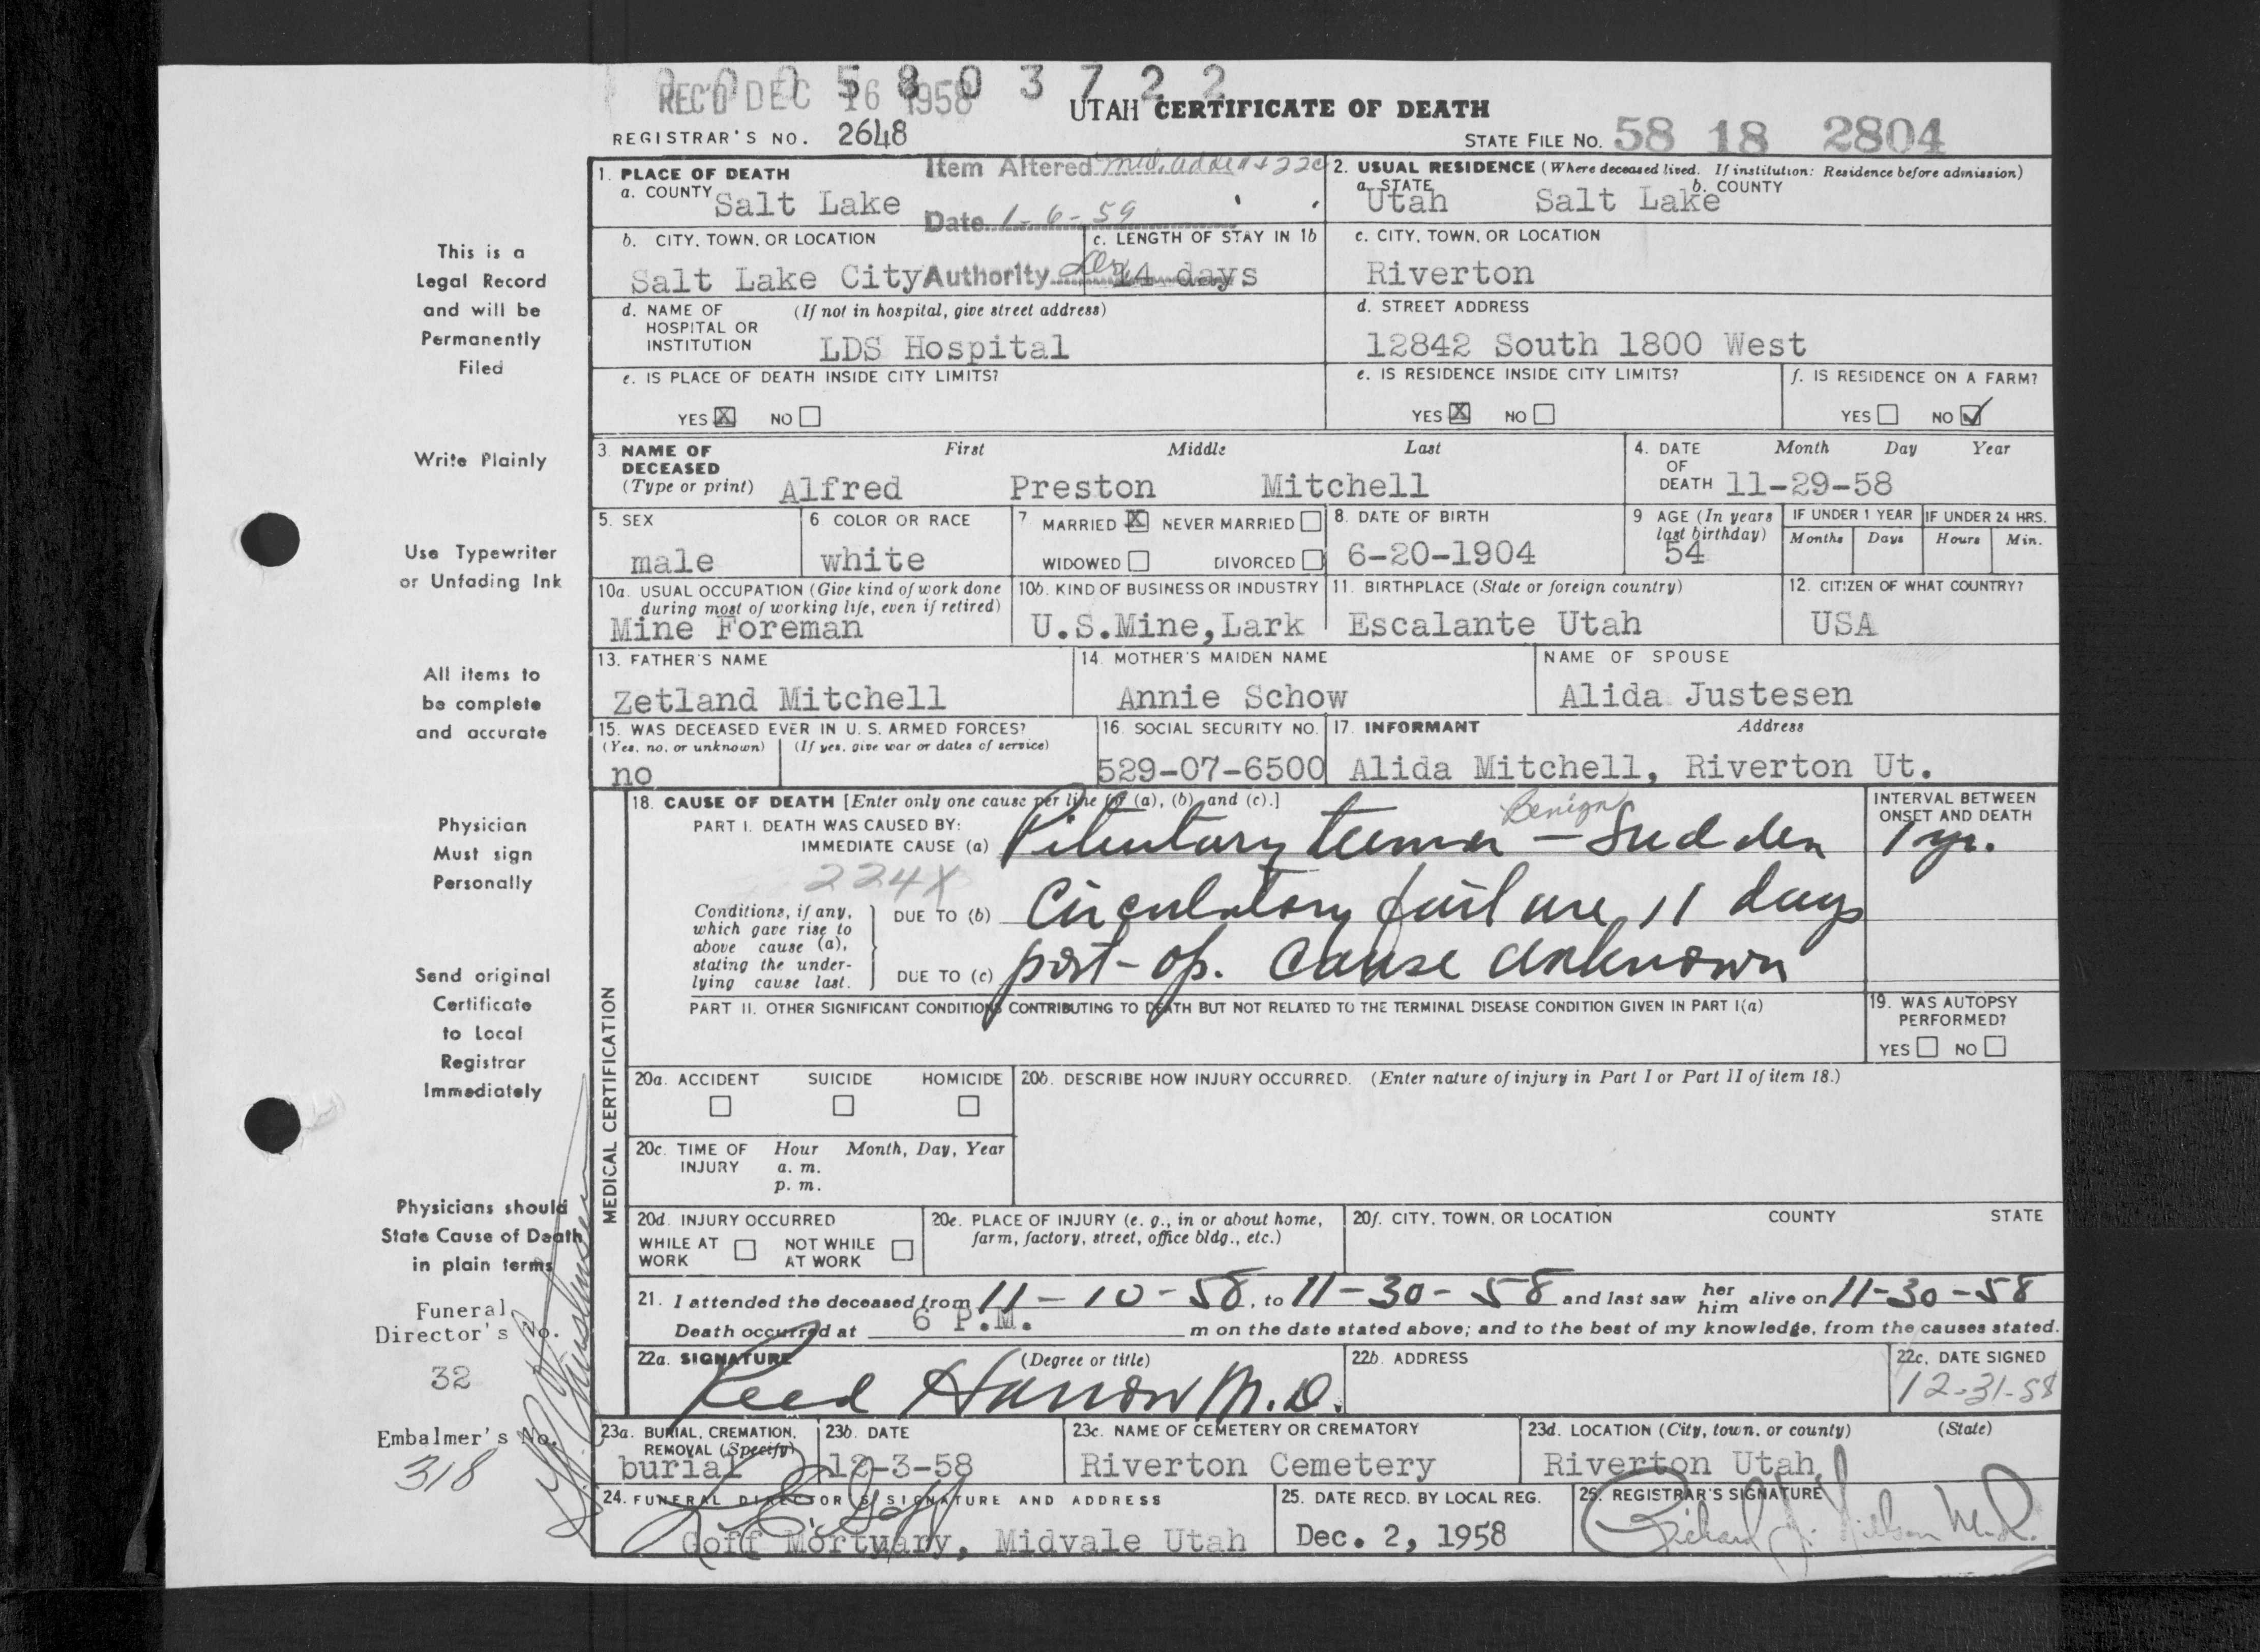 0 0 5 8 0 3 7 2 2
REC'D DEC 16 1958
UTAH CERTIFICATE OF DEATH
REGISTRAR'S NO. 2648
STATE FILE NO. 58 18 2804
Item Altered med. added + 22c
Date 1-6-59
Authority
1. PLACE OF DEATH
a. COUNTY Salt Lake
2. USUAL RESIDENCE (Where deceased lived. If institution: Residence before admission)
a. STATE Utah b. COUNTY Salt Lake
b. CITY, TOWN, OR LOCATION Salt Lake City
c. LENGTH OF STAY IN 1b 14 days
c. CITY, TOWN, OR LOCATION Riverton
d. NAME OF HOSPITAL OR INSTITUTION (If not in hospital, give street address) LDS Hospital
d. STREET ADDRESS 12842 South 1800 West
e. IS PLACE OF DEATH INSIDE CITY LIMITS?
YES X NO
e. IS RESIDENCE INSIDE CITY LIMITS?
YES X NO
f. IS RESIDENCE ON A FARM?
YES NO ✓
3. NAME OF DECEASED (Type or print)
First Middle Last
Alfred Preston Mitchell
4. DATE OF DEATH Month Day Year
11-29-58
5. SEX male
6 COLOR OR RACE white
7 MARRIED X NEVER MARRIED
WIDOWED DIVORCED
8. DATE OF BIRTH 6-20-1904
9 AGE (In years last birthday) 54
IF UNDER 1 YEAR Months Days
IF UNDER 24 HRS. Hours Min.
10a. USUAL OCCUPATION (Give kind of work done during most of working life, even if retired)
Mine Foreman
10b. KIND OF BUSINESS OR INDUSTRY
U.S.Mine,Lark
11. BIRTHPLACE (State or foreign country)
Escalante Utah
12. CITIZEN OF WHAT COUNTRY?
USA
13. FATHER'S NAME
Zetland Mitchell
14. MOTHER'S MAIDEN NAME
Annie Schow
NAME OF SPOUSE
Alida Justesen
15. WAS DECEASED EVER IN U. S. ARMED FORCES?
(Yes, no, or unknown) (If yes, give war or dates of service)
no
16. SOCIAL SECURITY NO.
529-07-6500
17. INFORMANT Address
Alida Mitchell, Riverton Ut.
MEDICAL CERTIFICATION
18. CAUSE OF DEATH [Enter only one cause per line for (a), (b), and (c).]
INTERVAL BETWEEN ONSET AND DEATH
PART I. DEATH WAS CAUSED BY:
IMMEDIATE CAUSE (a) Pituitary tumor Benign - Sudden 1 yr.
224X
Conditions, if any, which gave rise to above cause (a), stating the underlying cause last.
DUE TO (b) Circulatory failure, 11 days
DUE TO (c) post-op. Cause unknown
PART II. OTHER SIGNIFICANT CONDITIONS CONTRIBUTING TO DEATH BUT NOT RELATED TO THE TERMINAL DISEASE CONDITION GIVEN IN PART I(a)
19. WAS AUTOPSY PERFORMED?
YES NO
20a. ACCIDENT SUICIDE HOMICIDE
20b. DESCRIBE HOW INJURY OCCURRED. (Enter nature of injury in Part I or Part II of item 18.)
20c. TIME OF INJURY Hour Month, Day, Year
a. m.
p. m.
20d. INJURY OCCURRED
WHILE AT WORK NOT WHILE AT WORK
20e. PLACE OF INJURY (e. g., in or about home, farm, factory, street, office bldg., etc.)
20f. CITY, TOWN, OR LOCATION COUNTY STATE
21. I attended the deceased from 11-10-58, to 11-30-58 and last saw her him alive on 11-30-58
Death occurred at 6 P.M. m on the date stated above; and to the best of my knowledge, from the causes stated.
22a. SIGNATURE (Degree or title)
Reed Harrow M.D.
22b. ADDRESS
22c. DATE SIGNED
12-31-58
23a. BURIAL, CREMATION, REMOVAL (Specify)
burial
23b. DATE
12-3-58
23c. NAME OF CEMETERY OR CREMATORY
Riverton Cemetery
23d. LOCATION (City, town, or county) (State)
Riverton Utah
24. FUNERAL DIRECTOR'S SIGNATURE AND ADDRESS
Goff Mortuary, Midvale Utah
25. DATE RECD. BY LOCAL REG.
Dec. 2, 1958
26. REGISTRAR'S SIGNATURE
Richard J. Nilson M.D.
This is a
Legal Record
and will be
Permanently
Filed
Write Plainly
Use Typewriter
or Unfading Ink
All items to
be complete
and accurate
Physician
Must sign
Personally
Send original
Certificate
to Local
Registrar
Immediately
Physicians should
State Cause of Death
in plain terms
Funeral
Director's No.
32
Embalmer's No.
318